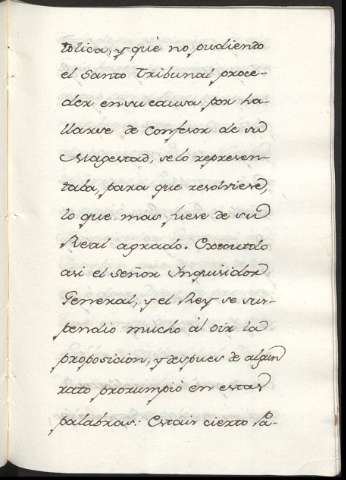 tolica, y que no pudiendo
el Santo Tribunal proce-
der en su causa, por ha-
llarse de Confesor de su
Magestad, se lo represen-
taba, para que resolviese,
lo que mas fuese de su
Real agrado. Executolo
asi el Señor Inquisidor
General, y el Rey se sus-
pendio mucho ál oir la
proposicion, y despues de algun
rato prorumpió en estas
palabras: Estais cierto Pa-